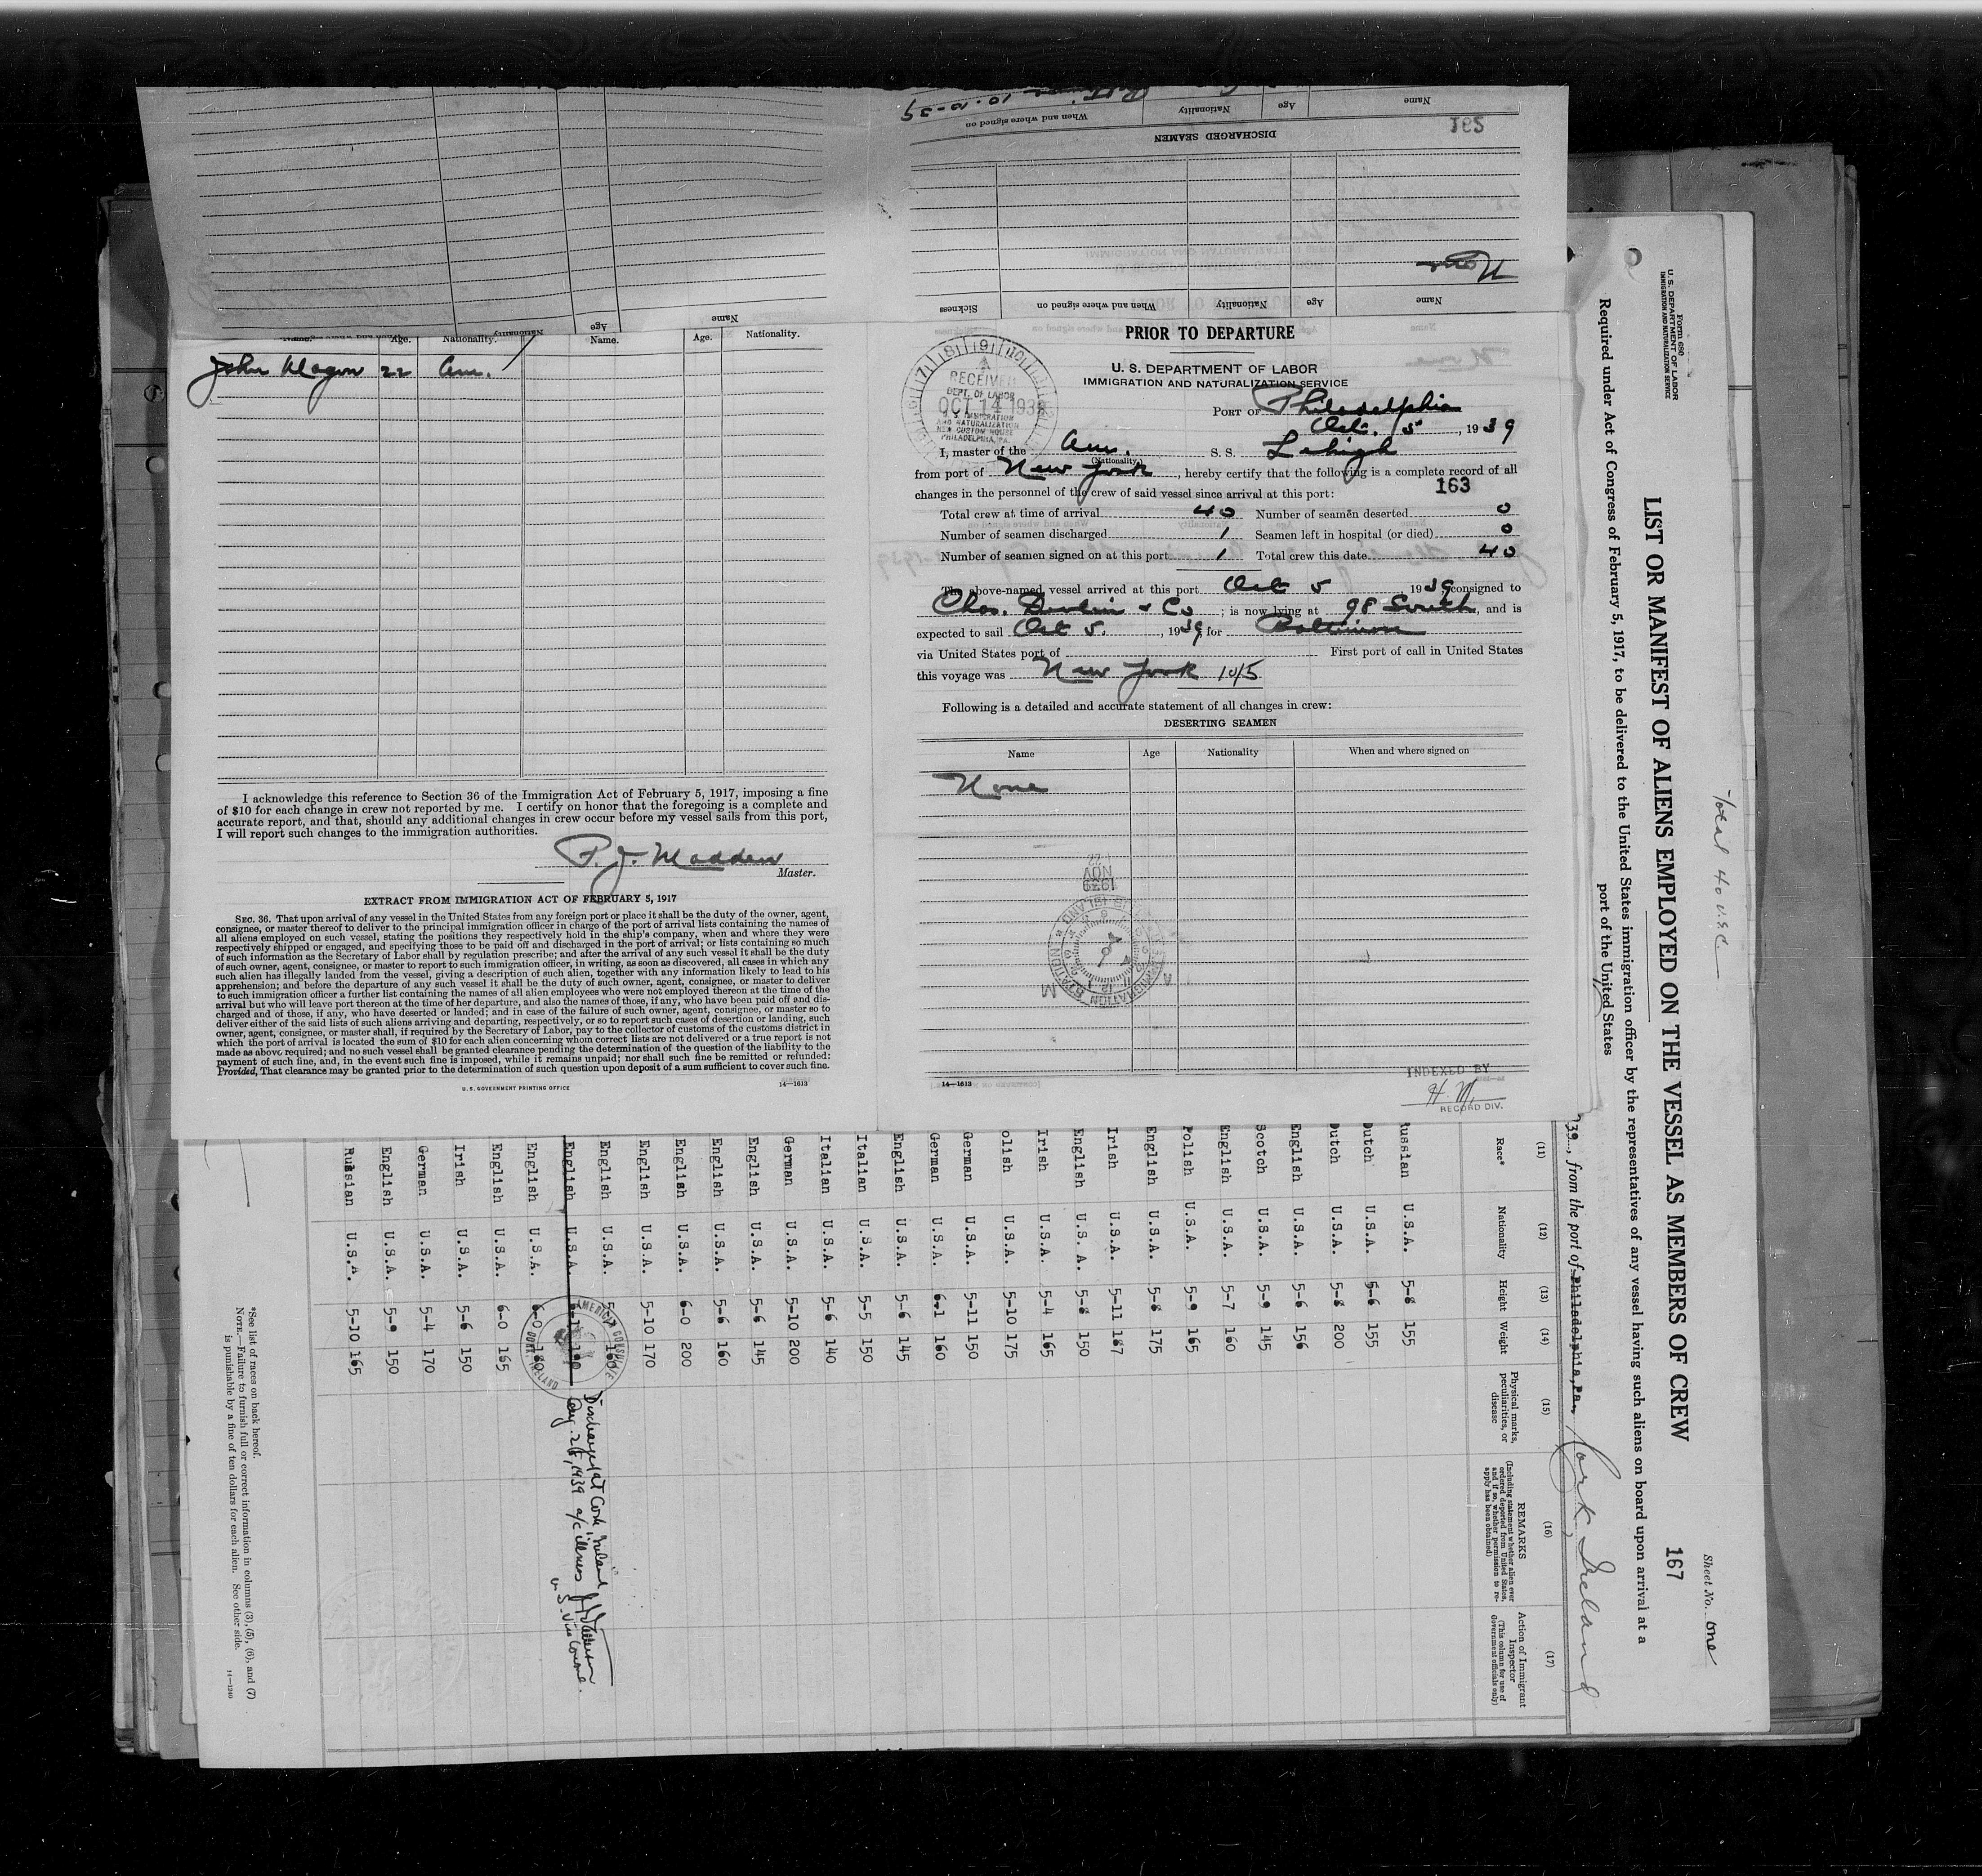 DISCHARGED SEAMEN
Name
Age
Nationality
When and where signed on
Name
Age
Nationality
When and where signed on
Sickness
Age.
Nationality.
Name.
Age.
Nationality.
John 22 Am.
I acknowledge this reference to Section 36 of the Immigration Act of February 5, 1917, imposing a fine
of $10 for each change in crew not reported by me. I certify on honor that the foregoing is a complete and
accurate report, and that, should any additional changes in crew occur before my vessel sails from this port,
I will report such changes to the immigration authorities.
P. J. Madden
Master.
EXTRACT FROM IMMIGRATION ACT OF FEBRUARY 5, 1917
SEC. 36. That upon arrival of any vessel in the United States from any foreign port or place it shall be the duty of the owner, agent,
consignee, or master thereof to deliver to the principal immigration officer in charge of the port of arrival lists containing the names of
all aliens employed on such vessel, stating the positions they respectively hold in the ship's company, when and where they were
respectively shipped or engaged, and specifying those to be paid off and discharged in the port of arrival; or lists containing so much
of such information as the Secretary of Labor shall by regulation prescribe; and after the arrival of any such vessel it shall be the duty
of such owner, agent, consignee, or master to report to such immigration officer, in writing, as soon as discovered, all cases in which any
such alien has illegally landed from the vessel, giving a description of such alien, together with any information likely to lead to his
apprehension; and before the departure of any such vessel it shall be the duty of such owner, agent, consignee, or master to deliver
to such immigration officer a further list containing the names of all alien employees who were not employed thereon at the time of the
arrival but who will leave port thereon at the time of her departure, and also the names of those, if any, who have been paid off and dis-
charged and of those, if any, who have deserted or landed; and in case of the failure of such owner, agent, consignee, or master so to
deliver either of the said lists of such aliens arriving and departing, respectively, or so to report such cases of desertion or landing, such
owner, agent, consignee, or master shall, if required by the Secretary of Labor, pay to the collector of customs of the customs district in
which the port of arrival is located the sum of $10 for each alien concerning whom correct lists are not delivered or a true report is not
made as above required; and no such vessel shall be granted clearance pending the determination of the question of the liability to the
payment of such fine, and, in the event such fine is imposed, while it remains unpaid; nor shall such fine be remitted or refunded:
Provided, That clearance may be granted prior to the determination of such question upon deposit of a sum sufficient to cover such fine.
U. S. GOVERNMENT PRINTING OFFICE
14—1613
PRIOR TO DEPARTURE
U. S. DEPARTMENT OF LABOR
IMMIGRATION AND NATURALIZATION SERVICE
RECEIVED
DEPT. OF LABOR
OCT 14 1939
U. S. IMMIGRATION
AND NATURALIZATION
NEW CUSTOM HOUSE
PHILADELPHIA, PA.
PORT OF Philadelphia
Oct. 5, 1939
I, master of the Am. S. S. Lehigh
(Nationality)
from port of New York, hereby certify that the following is a complete record of all
changes in the personnel of the crew of said vessel since arrival at this port:
163
Total crew at time of arrival 40 Number of seamen deserted 0
Number of seamen discharged 1 Seamen left in hospital (or died) 0
Number of seamen signed on at this port 1 Total crew this date 40
The above-named vessel arrived at this port Oct 5 1939 consigned to
Chas. & Co; is now lying at 98 South, and is
expected to sail Oct 5., 1939, for Baltimore
via United States port of First port of call in United States
this voyage was New York 10/5
Following is a detailed and accurate statement of all changes in crew:
DESERTING SEAMEN
Name
Age
Nationality
When and where signed on
None
1939
NOV
22
IMMIGRATION STATION
14—1613
INDEXED BY
H. M.
RECORD DIV.
Form 680
U. S. DEPARTMENT OF LABOR
IMMIGRATION AND NATURALIZATION SERVICE
Total 40 U.S.C
Sheet No. One
LIST OR MANIFEST OF ALIENS EMPLOYED ON THE VESSEL AS MEMBERS OF CREW
167
Required under Act of Congress of February 5, 1917, to be delivered to the United States immigration officer by the representatives of any vessel having such aliens on board upon arrival at a
port of the United States
39, from the port of Philadelphia, Pa. Cork, Ireland
(11)
(12)
(13)
(14)
(15)
(16)
(17)
Race*
Nationality
Height
Weight
Physical marks, peculiarities, or disease
REMARKS
(Including statement whether alien ever ordered deported from United States, and if so, whether permission to reapply has been obtained)
Action of Immigrant Inspector
(This column for use of Government officials only)
ussian U.S.A. 5-8 155
utch U.S.A. 5-6 155
utch U.S.A. 5-8 200
English U.S.A. 5-6 156
Scotch U.S.A. 5-9 145
English U.S.A. 5-7 160
Polish U.S.A. 5-9 165
English U.S.A. 5-8 175
Irish U.S.A. 5-11 187
English U.S. A. 5-8 150
Irish U.S.A. 5-4 165
olish U.S.A. 5-10 175
German U.S.A. 5-11 150
German U.S.A. 6-1 160
English U.S.A. 5-6 145
Italian U.S.A. 5-5 150
Italian U.S.A. 5-6 140
German U.S.A. 5-10 200
English U.S.A. 5-6 145
English U.S.A. 5-6 160
English U.S.A. 6-0 200
English U.S.A. 5-10 170
English U.S.A. 160
English U.S.A.
Discharged at Cork Ireland
Aug. 28, 1939 a/c illness
U.S. Vice Consul.
AMERICAN CONSULATE
CORK, IRELAND
English U.S.A. 6-0 180
English U.S.A. 6-0 165
Irish U.S.A. 5-6 150
German U.S.A. 5-4 170
English U.S.A. 5-9 150
Russian U.S.A. 5-10 165
*See list of races on back hereof.
NOTE.—Failure to furnish full or correct information in columns (3), (5), (6), and (7)
is punishable by a fine of ten dollars for each alien. See other side.
14—1240